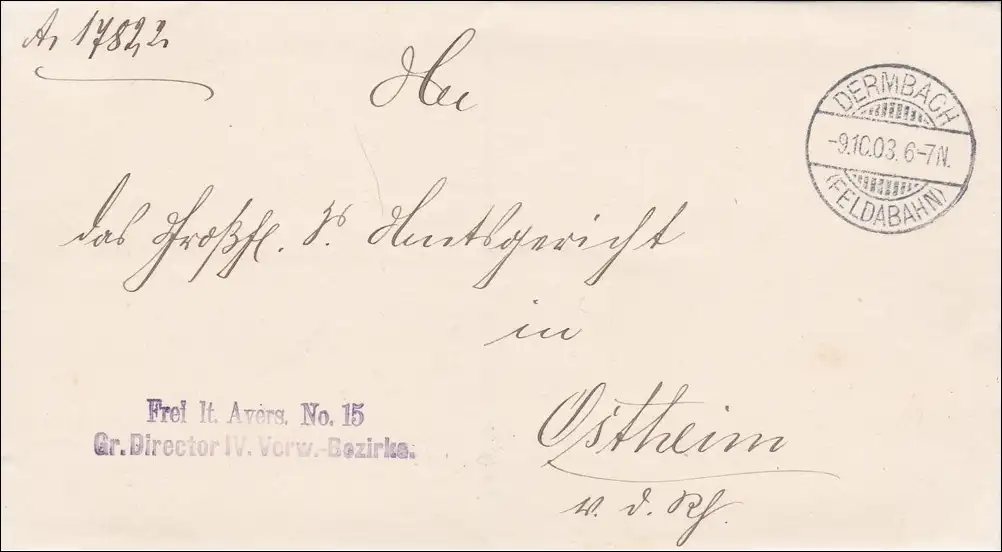 A, 1782,2.
An
DERMBACH
-9.10.03. 6-7N.
(FELDABAHN)
das Großh. S. Amtsgericht
in
Ostheim
v. d. Rh.
Frei lt. Avers. No. 15
Gr. Director IV. Verw.-Bezirks.